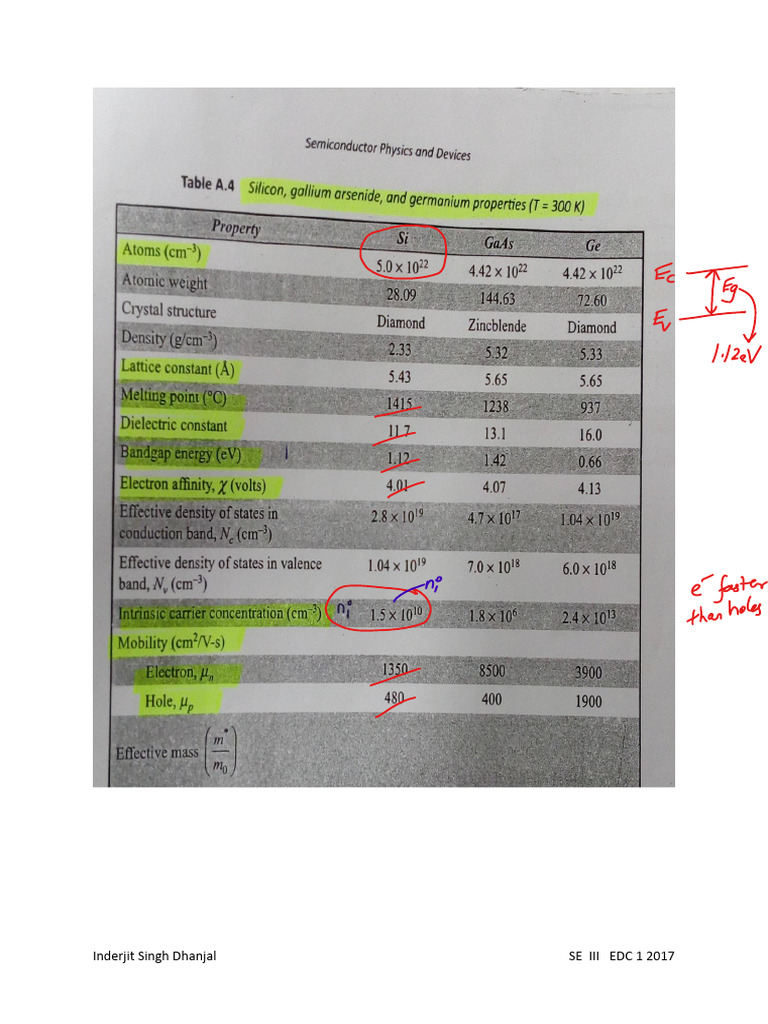 Semiconductor Physics and Devices
Table A.4 Silicon, gallium arsenide, and germanium properties (T = 300 K)
Property Si GaAs Ge
Atoms (cm⁻³) 5.0 × 10²² 4.42 × 10²² 4.42 × 10²²
Atomic weight 28.09 144.63 72.60
Crystal structure Diamond Zincblende Diamond
Density (g/cm⁻³) 2.33 5.32 5.33
Lattice constant (Å) 5.43 5.65 5.65
Melting point (°C) 1415 1238 937
Dielectric constant 11.7 13.1 16.0
Bandgap energy (eV) 1.12 1.42 0.66
Electron affinity, χ (volts) 4.01 4.07 4.13
Effective density of states in
conduction band, N_c (cm⁻³) 2.8 × 10¹⁹ 4.7 × 10¹⁷ 1.04 × 10¹⁹
Effective density of states in valence
band, N_v (cm⁻³) 1.04 × 10¹⁹ 7.0 × 10¹⁸ 6.0 × 10¹⁸
Intrinsic carrier concentration (cm⁻³) nᵢ 1.5 × 10¹⁰ 1.8 × 10⁶ 2.4 × 10¹³
nᵢ
Mobility (cm²/V-s)
Electron, μₙ 1350 8500 3900
Hole, μₚ 480 400 1900
Effective mass (m*/m₀)
E_c
Eg
E_v
1.12eV
e⁻ faster
than holes
Inderjit Singh Dhanjal SE III EDC 1 2017